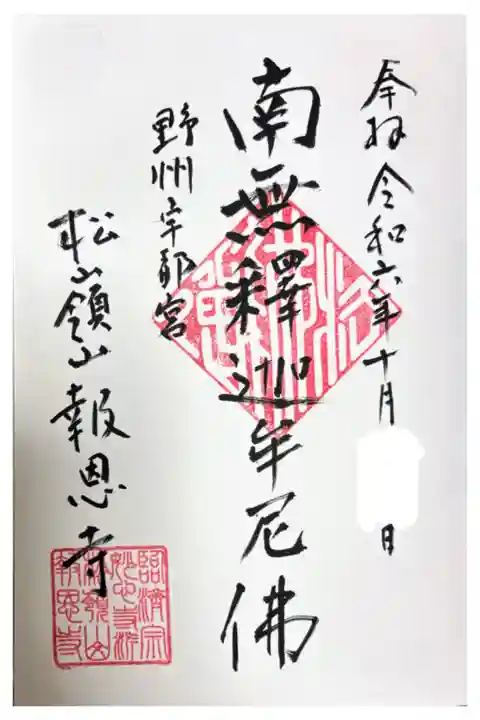 奉拝 令和六年十月 日
南無釋迦牟尼佛
野州宇都宮
松嶺山 報恩寺
臨済宗
妙心寺派
松嶺山
報恩寺